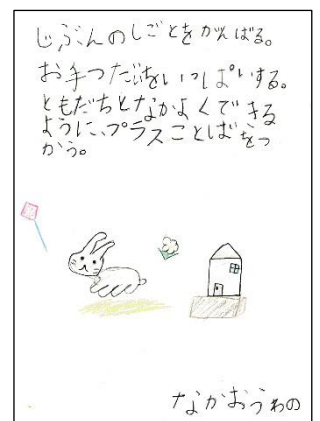 じぶんのしごとをがんばる。
お手つだいをいっぱいする。
ともだちとなかよくできる
ように、プラスことばをつ
かう。